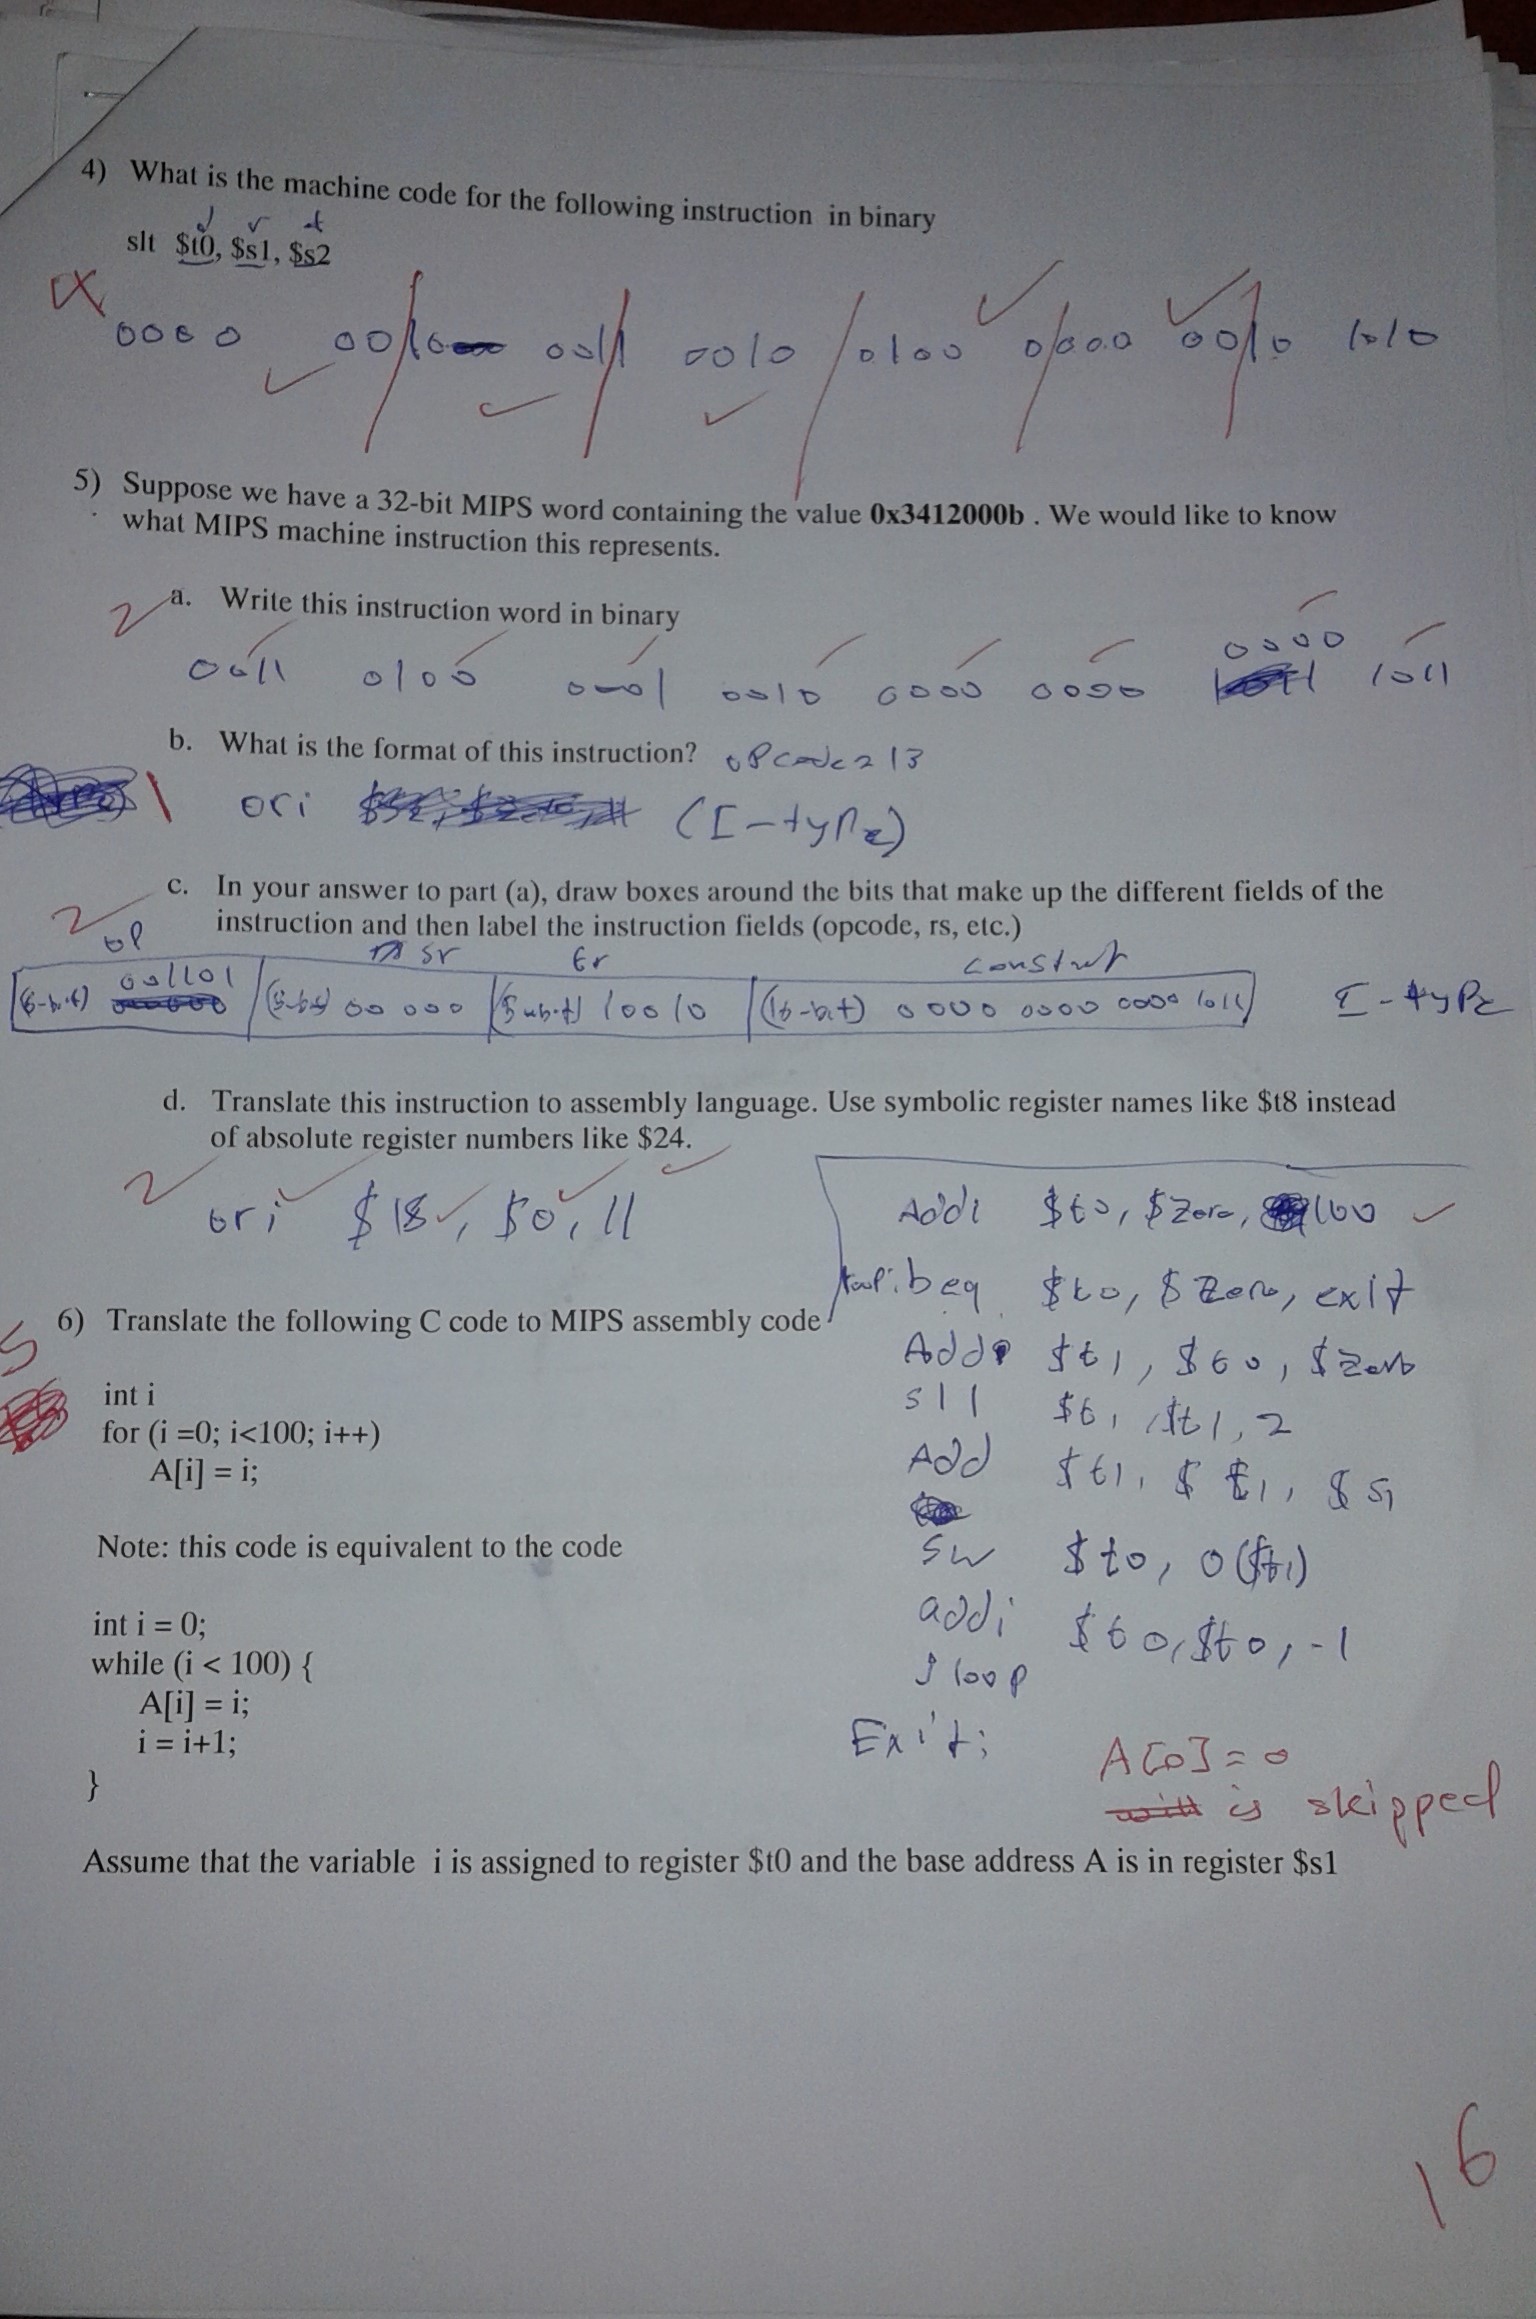 4) What is the machine code for the following instruction in binary
slt $t0, $s1, $s2
0000 0010 0011 0010 0100 0000 0010 1010
5) Suppose we have a 32-bit MIPS word containing the value 0x3412000b . We would like to know
what MIPS machine instruction this represents.
2 a. Write this instruction word in binary
0011 0100 0001 0010 0000 0000 0000 1011
b. What is the format of this instruction? opcode 13
1 ori (I-type)
c. In your answer to part (a), draw boxes around the bits that make up the different fields of the
2 instruction and then label the instruction fields (opcode, rs, etc.)
op sr tr
(6-bit) 001101 (5-bit) 00 000 (5-bit) 10010 (16-bit) 0000 0000 0000 1011 I-type
d. Translate this instruction to assembly language. Use symbolic register names like $t8 instead
of absolute register numbers like $24.
2 ori $18, $0, 11
6) Translate the following C code to MIPS assembly code
5
int i
for (i =0; i<100; i++)
A[i] = i;
Note: this code is equivalent to the code
int i = 0;
while (i < 100) {
A[i] = i;
i = i+1;
}
Addi $t0, $zero, 100
loop: beq $t0, $zero, exit
Add $t1, $t0, $zero
sll $t1, $t1, 2
Add $t1, $t1, $s1
sw $t0, 0($t1)
addi $t0, $t0, -1
J loop
Exit:
A[0] = 0
is skipped
Assume that the variable i is assigned to register $t0 and the base address A is in register $s1
16